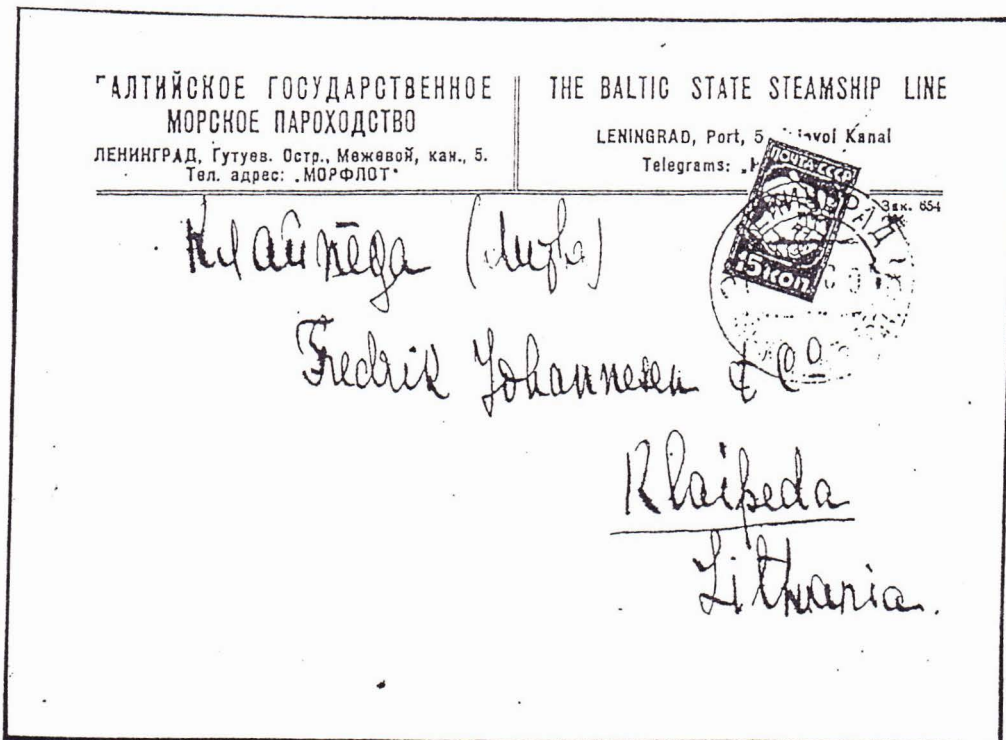 БАЛТИЙСКОЕ ГОСУДАРСТВЕННОЕ
МОРСКОЕ ПАРОХОДСТВО
ЛЕНИНГРАД, Гутуев. Остр., Межевой, кан., 5.
Тел. адрес: „МОРФЛОТ“
THE BALTIC STATE STEAMSHIP LINE
LENINGRAD, Port, 5 Kanal
Telegrams:
Зак. 654
ПОЧТА·СССР
15 КОП.
Клайпеда (Литва)
Fredrik Johannesen & Co
Klaipeda
Lithuania.